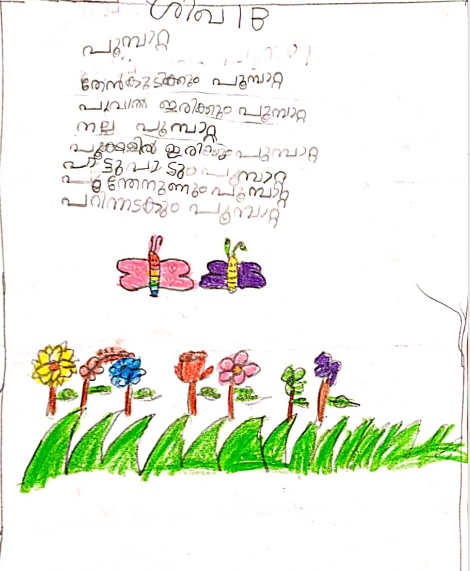 ശിഖ 1 B
പൂമ്പാറ്റ
തേൻകുടിക്കും പൂമ്പാറ്റ
പൂവിൽ ഇരിക്കും പൂമ്പാറ്റ
നല്ല പൂമ്പാറ്റ
പൂക്കളിൽ ഇരിക്കും പൂമ്പാറ്റ
പാട്ടുപാടും പൂമ്പാറ്റ
പൂന്തേനുണ്ണും പൂമ്പാറ്റ
പറിന്നടക്കും പൂമ്പാറ്റ